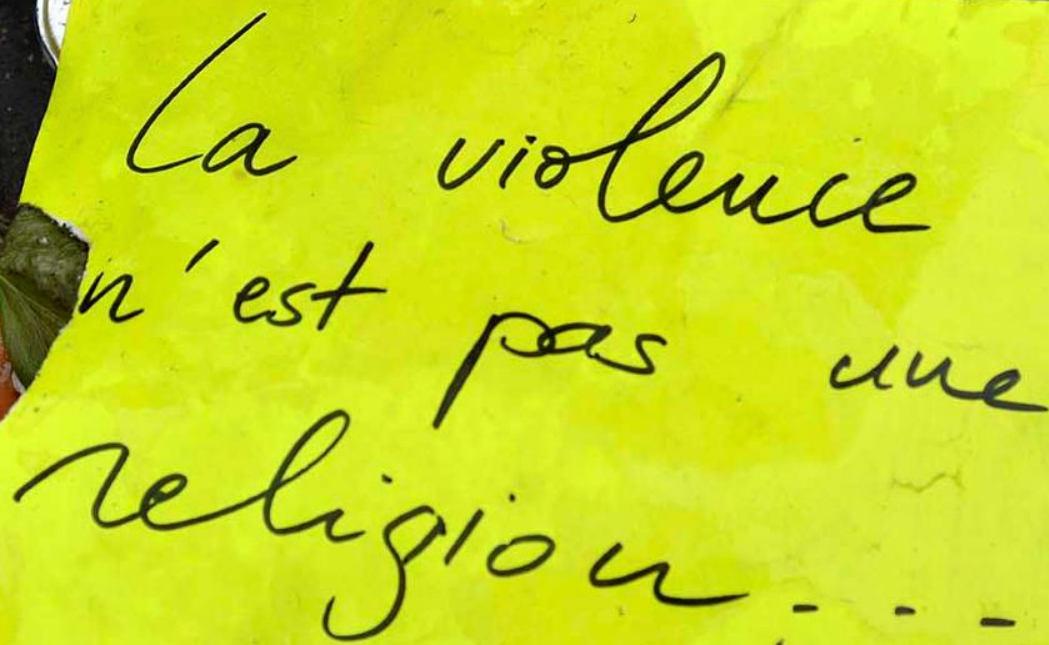 La violence
n'est pas une
religion...